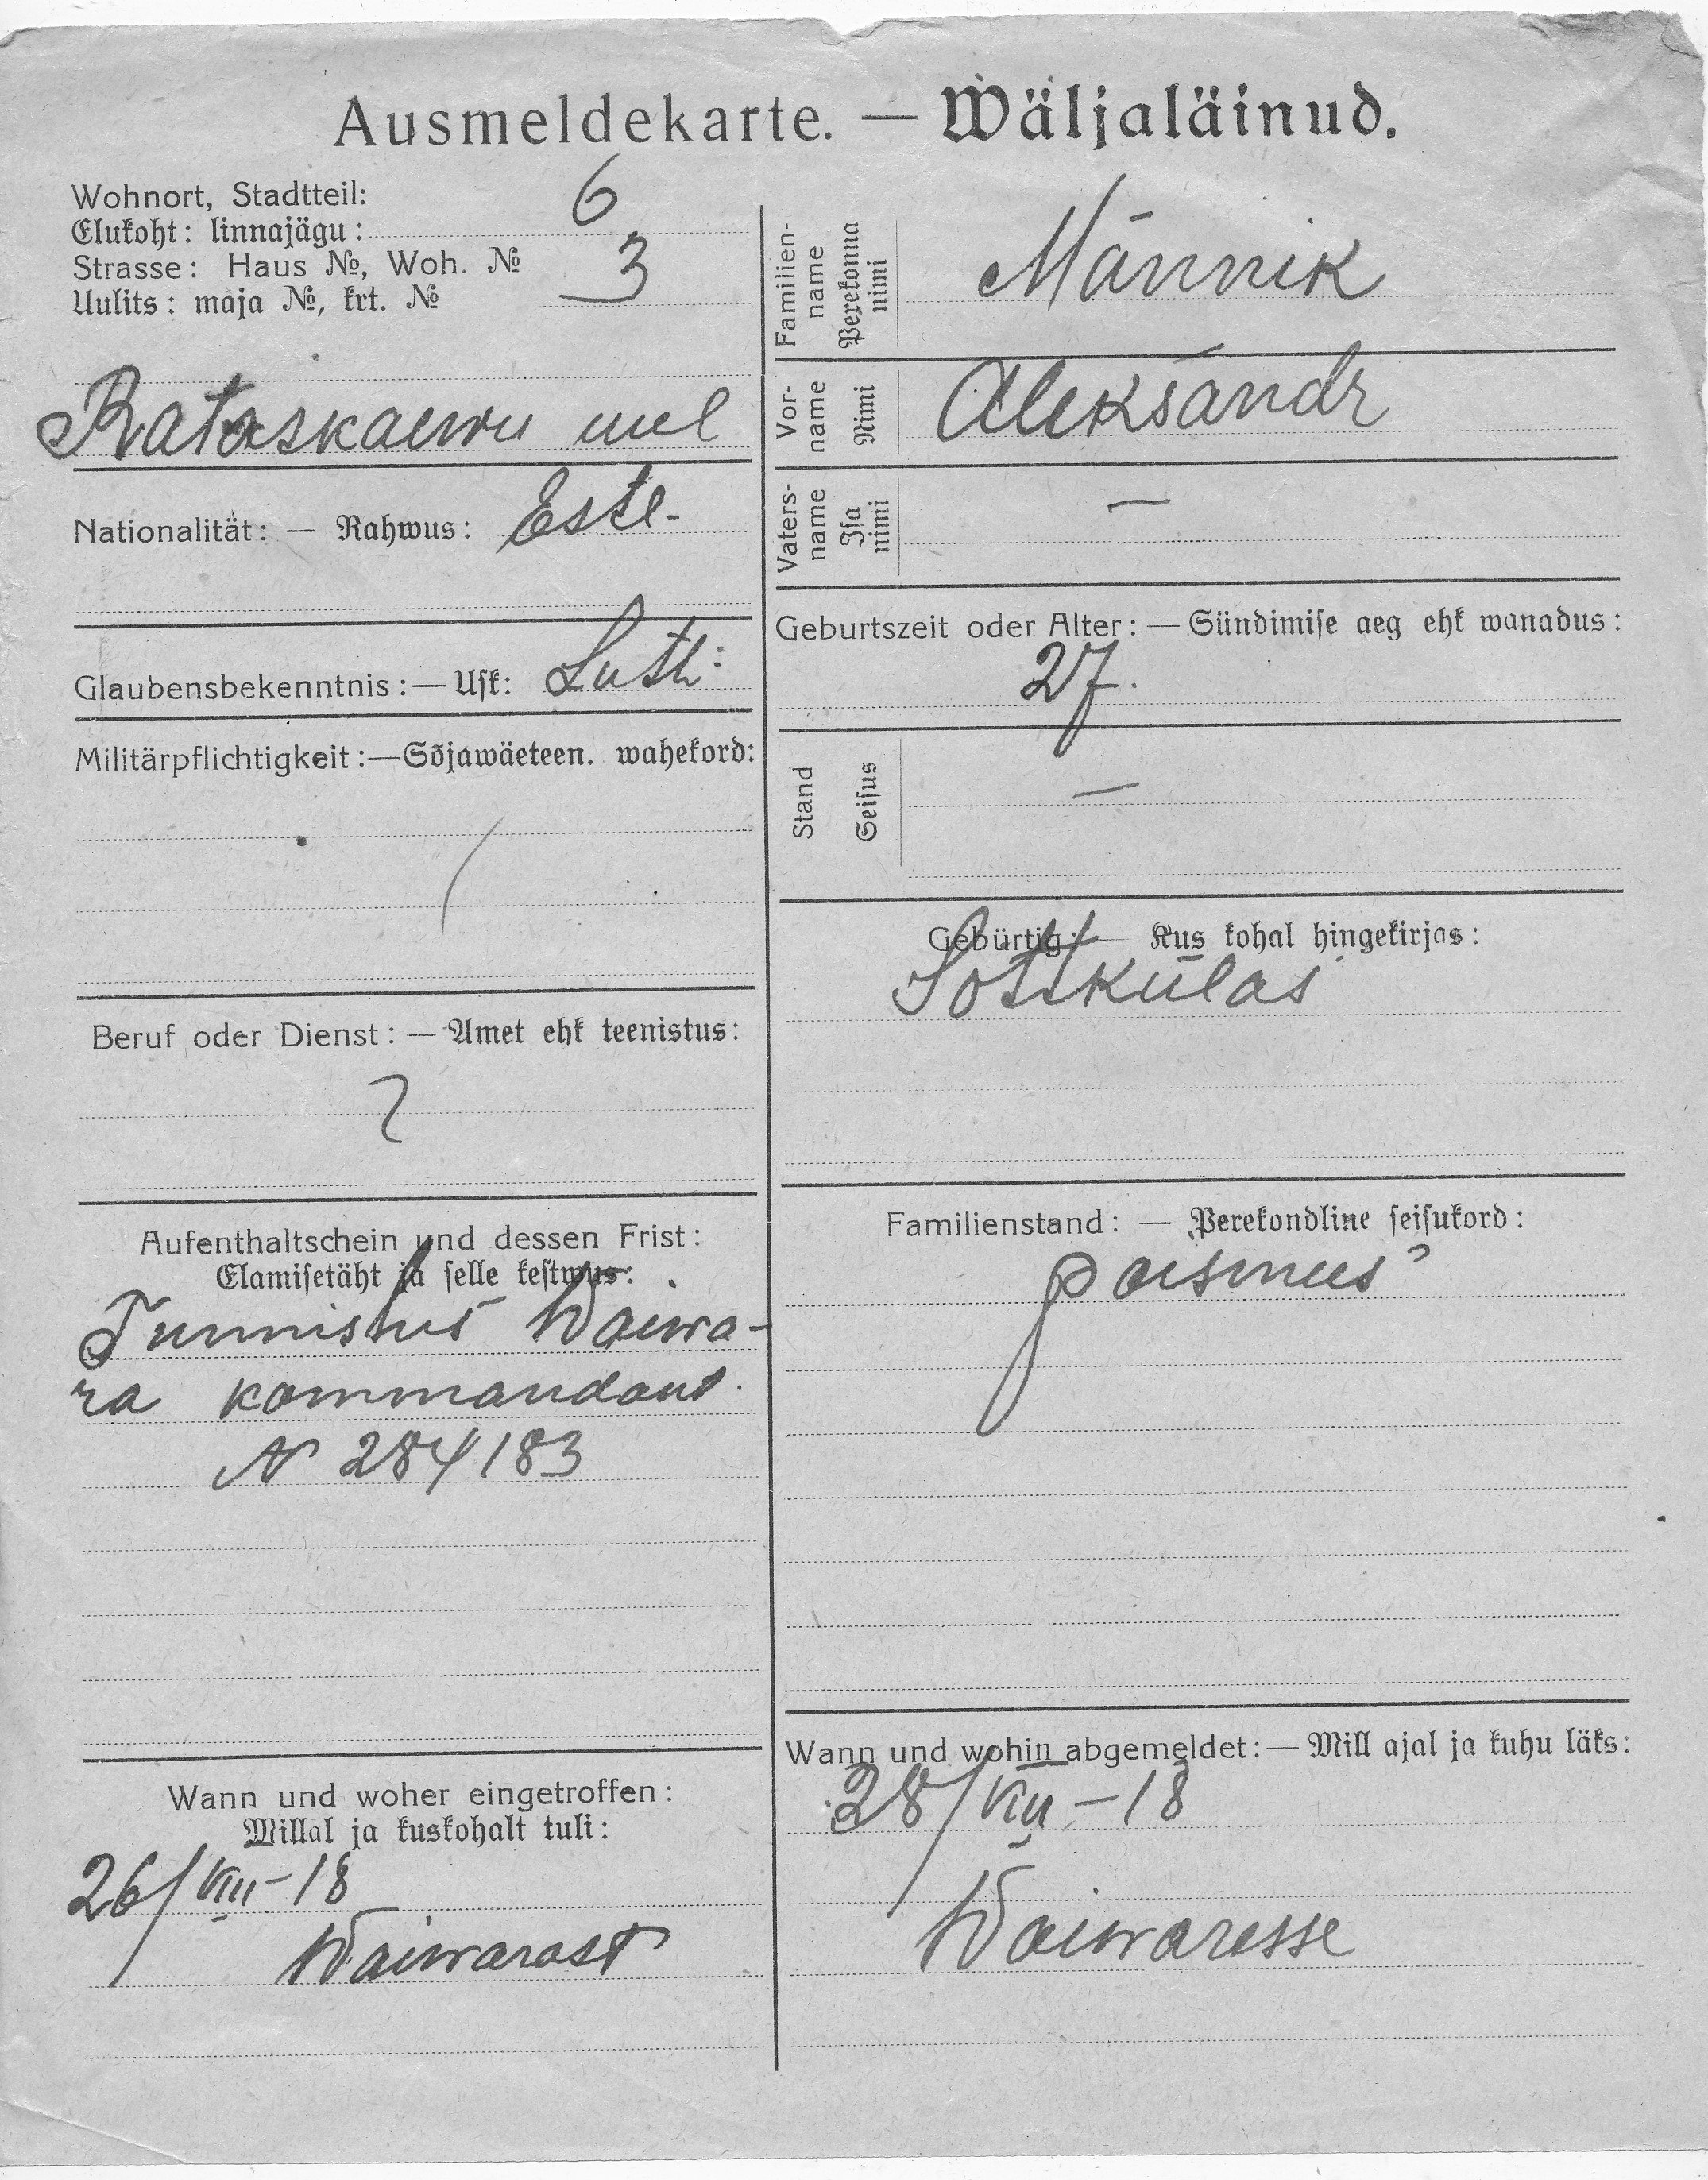 Ausmeldekarte. — Wäljaläinud.
Wohnort, Stadtteil:
Elukoht: linnajägu: 6
Strasse: Haus №, Woh. №
Uulits: maja №, krt. № 3
Rataskaewu uul
Nationalität: — Rahwus: Este-
Glaubensbekenntnis: — Usk: Luth:
Militärpflichtigkeit: — Sõjawäeteen. wahekord:
Beruf oder Dienst: — Amet ehk teenistus:
Aufenthaltschein und dessen Frist:
Elamisetäht ja selle kestwus:
Tunnistus Waiwa-
ra kommandant.
N 284183
Wann und woher eingetroffen:
Millal ja kuskohalt tuli:
26/VIII-18
Waiwarast
Familien-
name
Perekonna
nimi
Männik
Vor-
name
Nimi
Aleksandr
Vaters-
name
Isa
nimi
—
Geburtszeit oder Alter: — Sündimise aeg ehk wanadus:
27.
Stand
Seisus
—
Gebürtig: — Kus kohal hingekirjas:
Sottkülas
Familienstand: — Perekondline seisukord:
poismees
Wann und wohin abgemeldet: — Mill ajal ja kuhu läks:
28/VIII-18
Waiwaresse